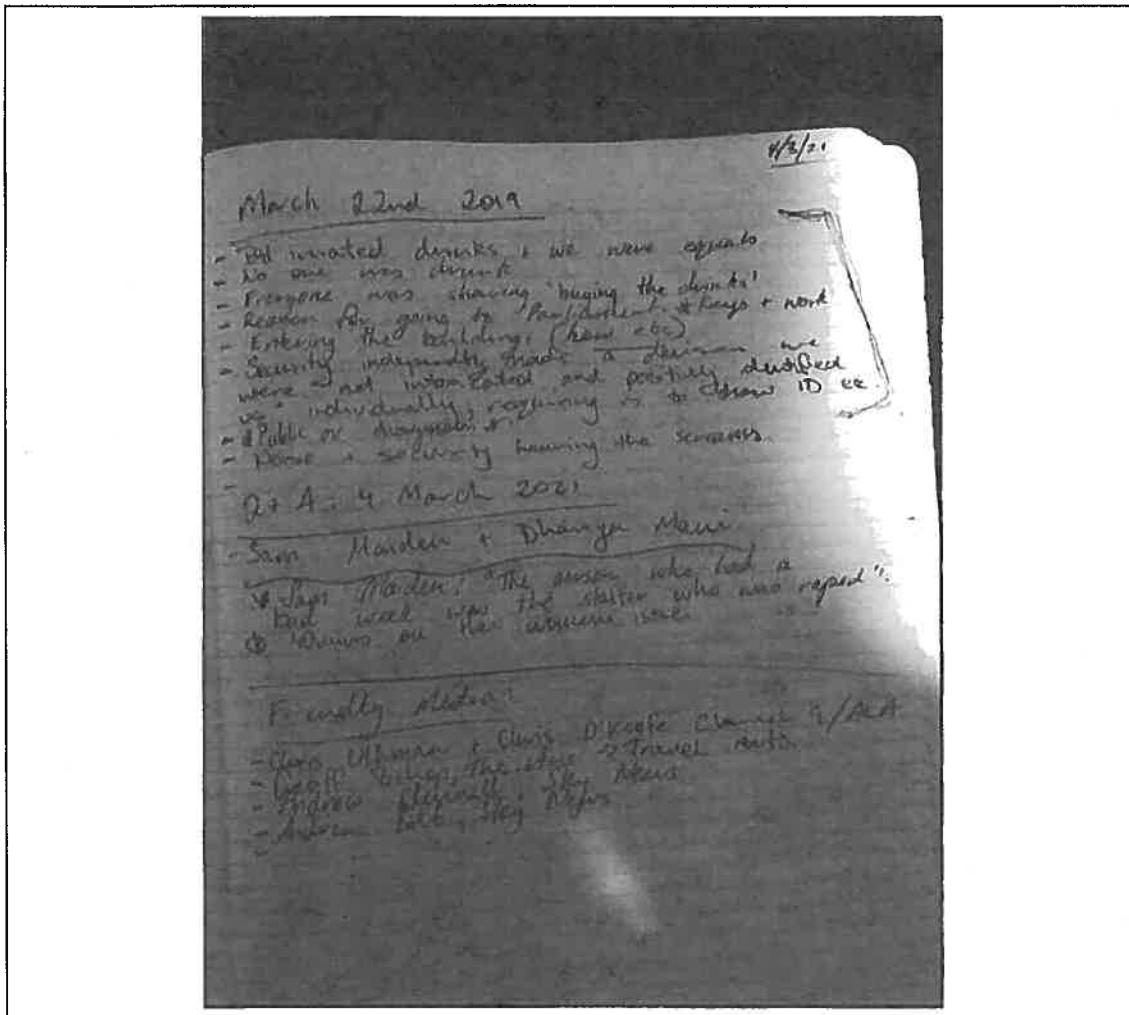 4/3/21
March 22nd 2019
- drinks + we were equals
- No one was drunk
- Everyone was sharing 'buying the drinks'
- Reason for going to Parliament * Keys + work
- Entering the building, (how etc)
- Security independently made a decision we
were "not intoxicated and positively identified
us" individually, requiring us to show ID
- Public
- + security hearing the screams.
-
Q + A: 4 March 2021
- Sam Maiden + Dhanya Mani
* Sam Maiden: "The person who had a
bad week was the staffer who was raped".
on the issue
Friendly Media:
- Chris Uhlman + Chris O'Keefe Channel 9/ACA
- Geoff the → Travel
- Andrew , Sky News
- Andrew Bolt, Sky News
-